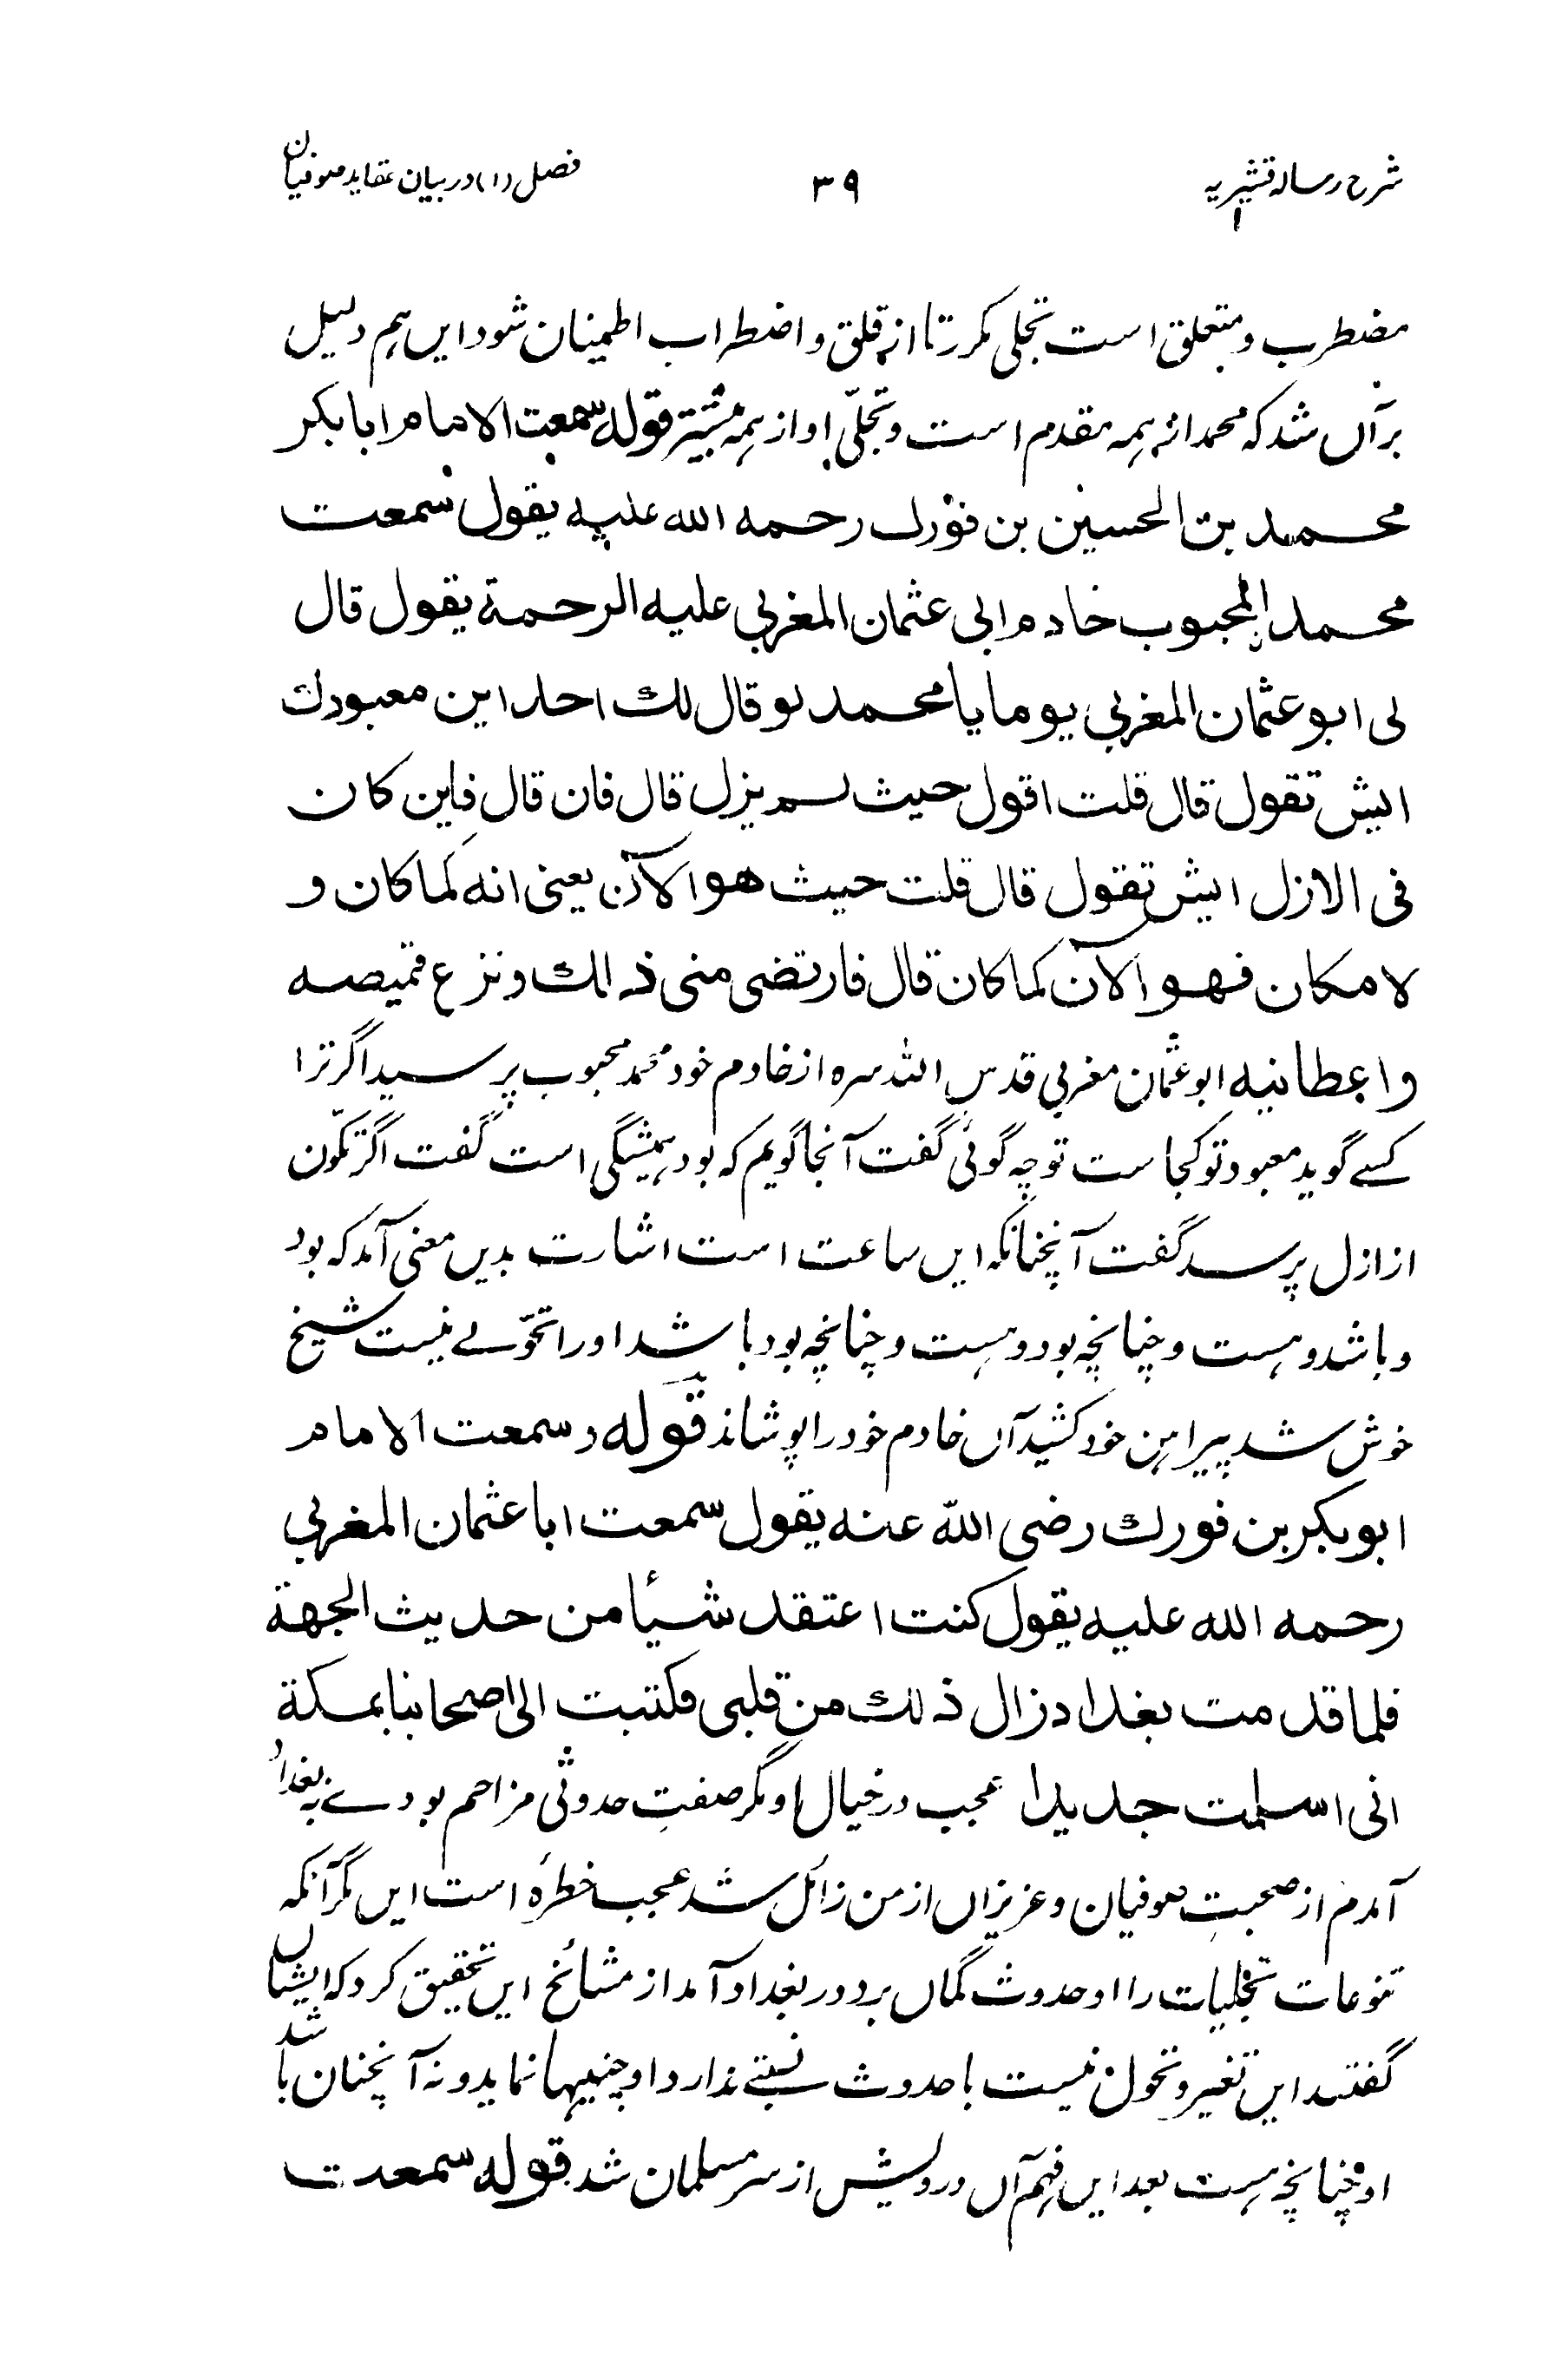 شرح رسالہ قشیریہ ۳۹ فصل (۱) در بیان عقاید صوفیان
مضطرب و متعلق است تجلی مکرر تا از قلق و اضطراب اطمینان شود ایں ہم دلیل
برآں شد کہ محمد از ہمہ مقدم است و تجلّی او از ہمہ پیشتر قوله سمعت الامام ابابکر
محمد بن الحسین بن فورك رحمه الله علیه یقول سمعت
محمد المحبوب خادم ابی عثمان المغربی علیه الرحمة یقول قال
لی ابو عثمان المغربی یوما یا محمد لو قال لك احد این معبودك
ایش تقول قال قلت اقول حیث لم یزل قال فان قال فاین کان
فی الازل ایش تقول قال قلت حیث هو الآن یعنی انه کما کان و
لا مکان فهو الآن کما کان قال فارتضی منی ذلك ونزع قمیصه
واعطانیه ابو عثمان مغربی قدس اللہ سرہ از خادم خود محمد محبوب پرسید اگر ترا
کسے گوید معبود تو کجاست تو چہ گوئی گفت آنجا گویم کہ بود ہمیشگی است گفت اگر تکوّن
از ازل پرسد گفت آنچنانکہ ایں ساعت است اشارت بدیں معنی آمد کہ بود
و باشد و ہست و چنانچہ بود و ہست و چنانچہ بود باشد او را تحوّلے نیست شیخ
خوش شد پیراہن خود کشید آں خادم خود را پوشاند قوله و سمعت الامام
ابوبکر بن فورك رضی الله عنه یقول سمعت ابا عثمان المغربی
رحمه الله علیه یقول کنت اعتقد شیأ من حدیث الجهة
فلما قدمت بغداد زال ذلك من قلبی فکتبت الی اصحابنا بمکة
انی اسلمت جدیدا عجب در خیال او مگر صفتِ حدوثی مزاحم بودے بہ بغداد
آمدم از صحبتِ صوفیان و عزیزاں از من زائل شد عجب خطرہ است ایں مگر آنکہ
تنوعات تجلیات را او حدوث گماں برد در بغداد آمد از مشائخ ایں تحقیق کرد کہ ایشاں
گفتند ایں تغیر و تحول نیست با حدوث نسبتے ندارد او چنیہا نماید و نہ آنچنان باشد
او چنانچہ ہست بعد ایں فہم آں درویش از سر مسلمان شد قوله سمعت